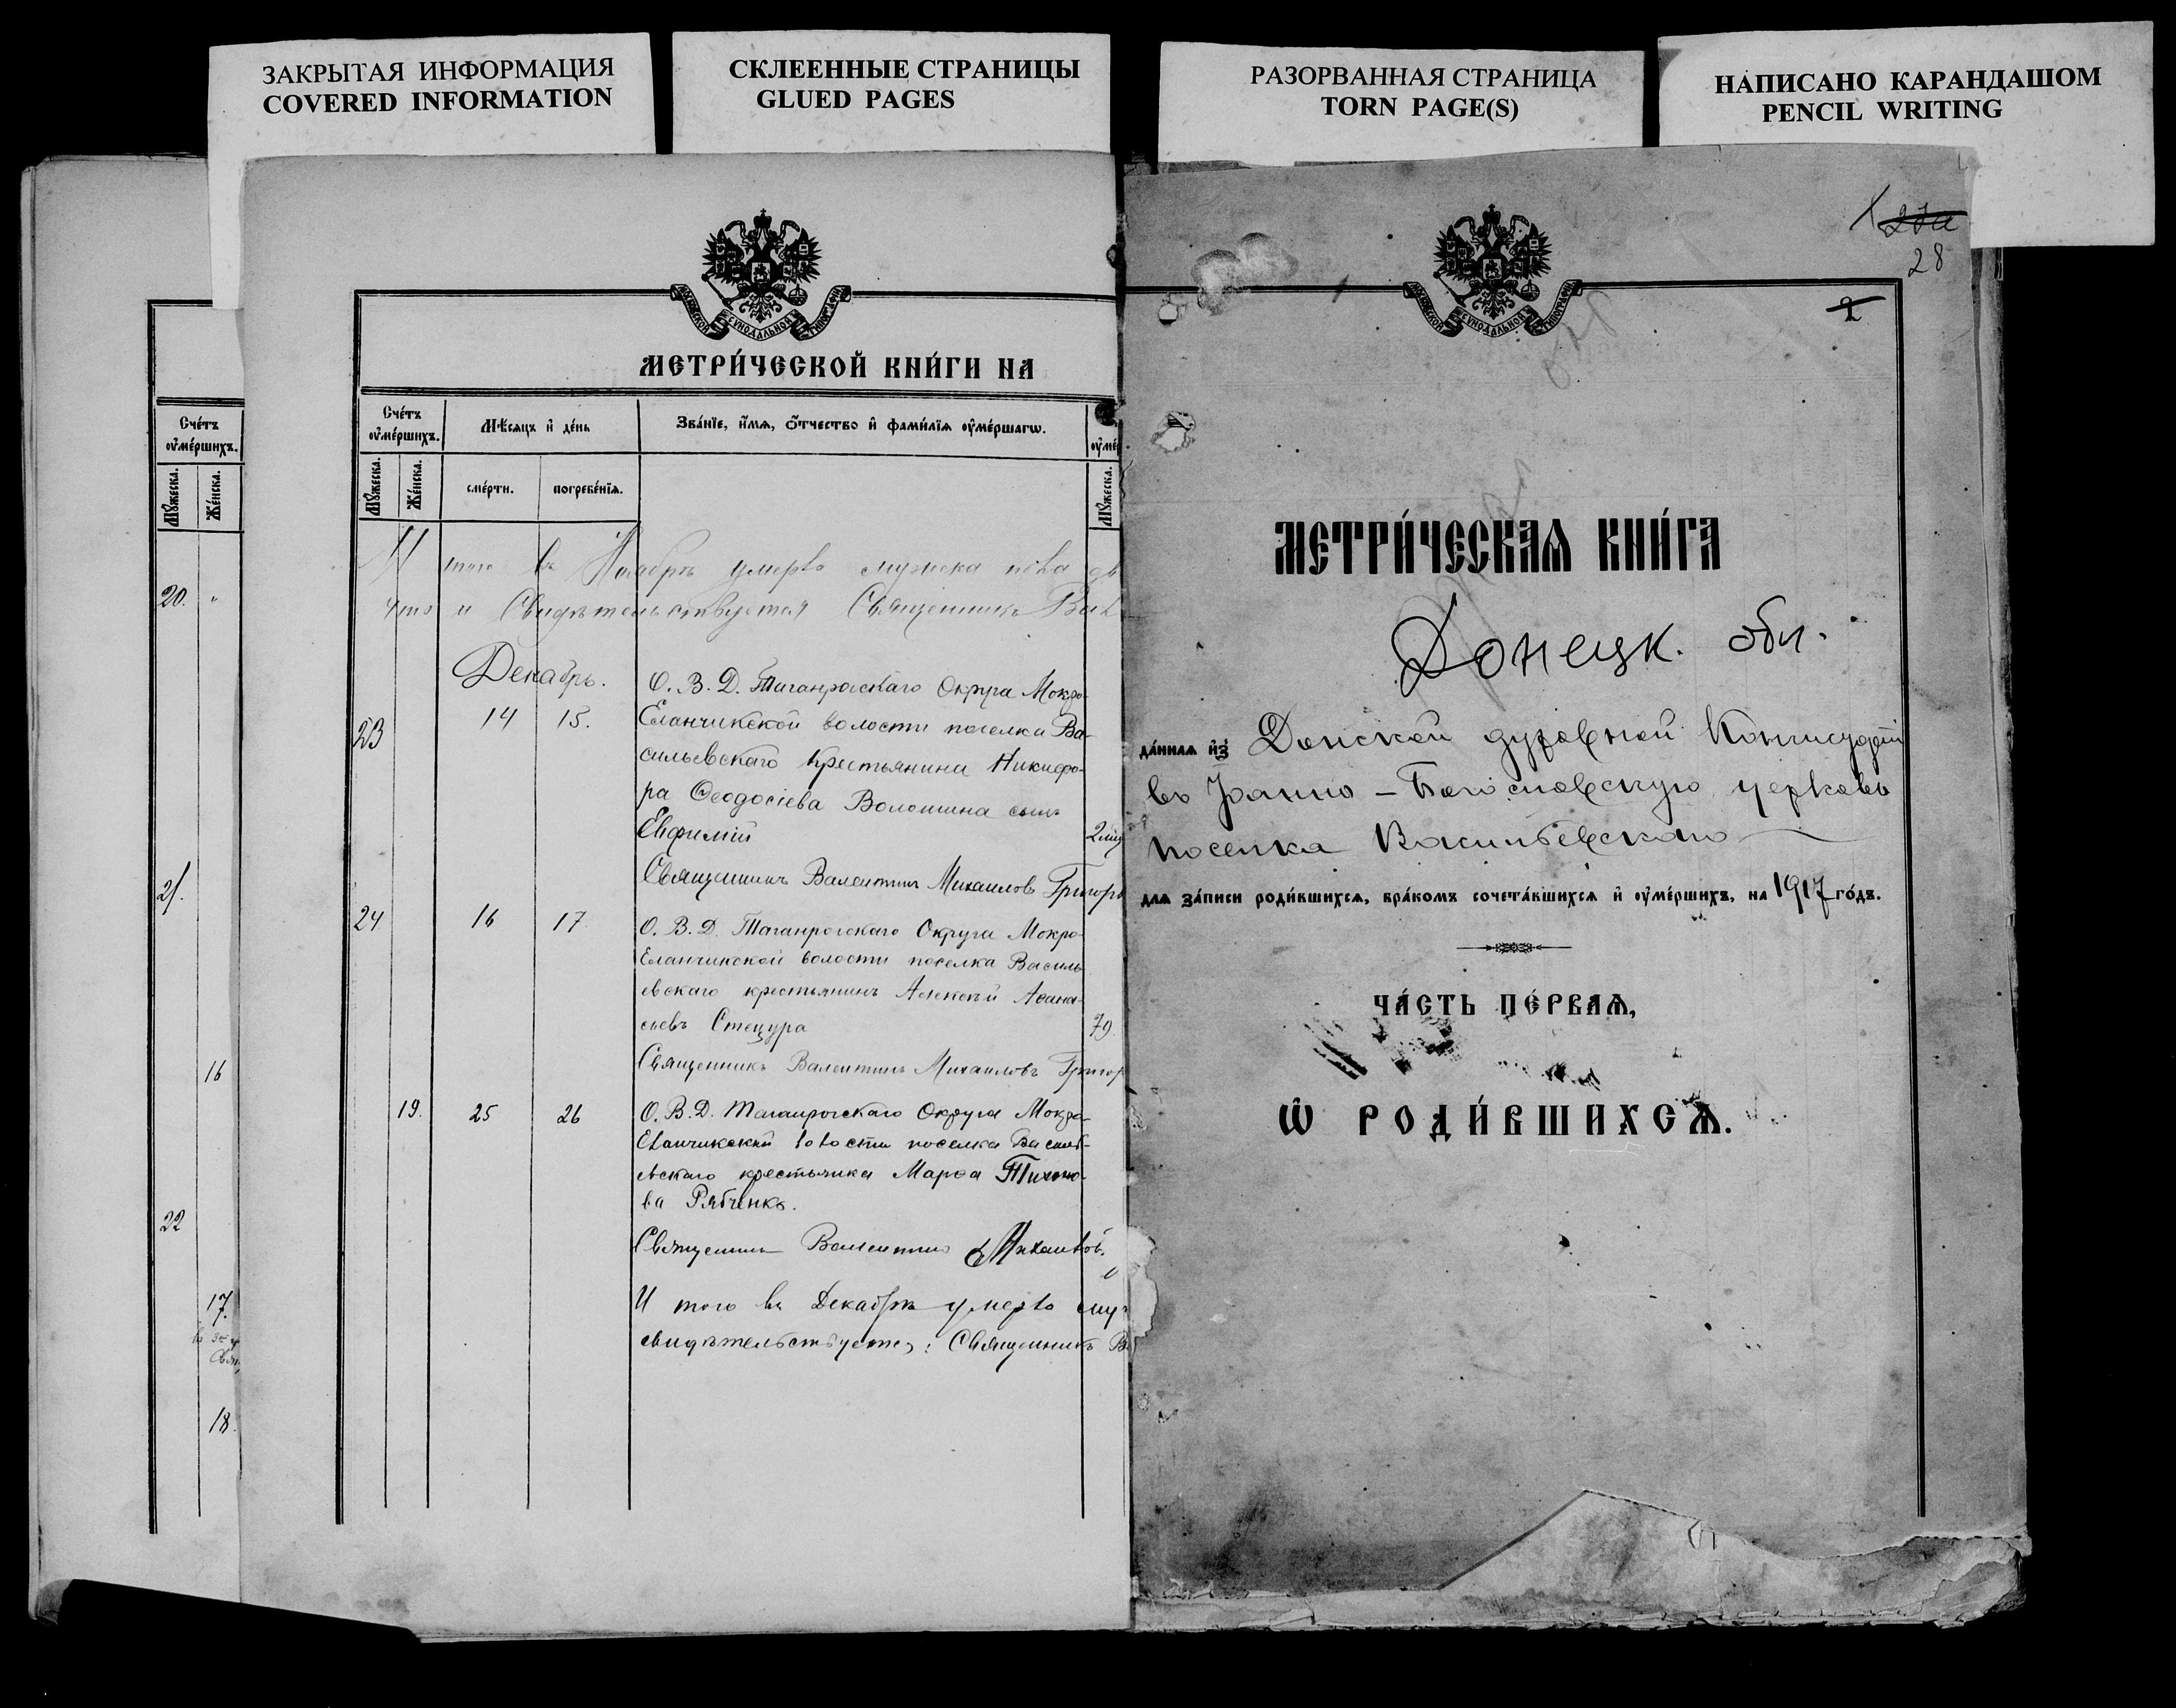 ЗАКРЫТАЯ ИНФОРМАЦИЯ
COVERED INFORMATION
СКЛЕЕННЫЕ СТРАНИЦЫ
GLUED PAGES
РАЗОРВАННАЯ СТРАНИЦА
TORN PAGE(S)
НАПИСАНО КАРАНДАШОМ
PENCIL WRITING
Сче́тъ
оу҆ме́ршихъ.
Мꙋ́жеска.
Же́нска.
20. "
21.
16
22
17.
18.
МОСКОВСКОЙ СѴНОДАЛЬНОЙ ТИПОГРАФІИ
МЕТРИ́ЧЕСКОЙ КНИ́ГИ НА
Сче́тъ
оу҆ме́ршихъ.
Мѣ́сяцъ и҆ де́нь
Зва́нїе, и҆́мѧ, ѻ҆́тчество и҆ фами́лїѧ оу҆ме́ршагѡ.
Мꙋ́жеска.
Же́нска.
сме́рти.
погребе́нїѧ.
Мꙋ́жеска.
И того въ Ноябрѣ умерло мужска пола дв
что и Свидѣтельствуется Священникъ Вал
Декабрь.
О. В. Д. Таганрогскаго Округа Мокро-
23 14 15. Еланчикской волости поселка Ва-
сильевскаго Крестьянина Никифо-
ра Ѳеодосіева Волошина сынъ
Евфимій
Священникъ Валентинъ Михаиловъ Григорь
24 16 17 О. В. Д. Таганрогскаго Округа Мокро-
Еланчикской волости поселка Василь-
евскаго крестьянинъ Алексѣй Аѳана-
сьевъ Стецура 79.
Священникъ Валентинъ Михаиловъ Григор
19. 25 26 О. В. Д. Таганрогскаго Округа Мокро-
Еланчикской волости поселка Василь-
евскаго крестьянка Марѳа Тихоно-
ва Рябченко.
Священникъ Валентинъ Михаилов.
И того въ Декабрѣ умерло муж
свидѣтельствуетъ: Священникъ В
28
2
МОСКОВСКОЙ СѴНОДАЛЬНОЙ ТИПОГРАФІИ
МЕТРИ́ЧЕСКАѦ КНИ́ГА
Донецк. обл.
да́ннаѧ и҆з̾ Донской духовной Консисторіи
въ Іоанно-Богословскую церковь
поселка Васильевскаго
длѧ за́писи роди́вшихсѧ, бра́комъ сочета́вшихсѧ и҆ оу҆ме́ршихъ, на 1917 го́дъ.
ЧА́СТЬ ПЕ́РВАѦ,
Ѡ҆ РОДИ́ВШИХСѦ.